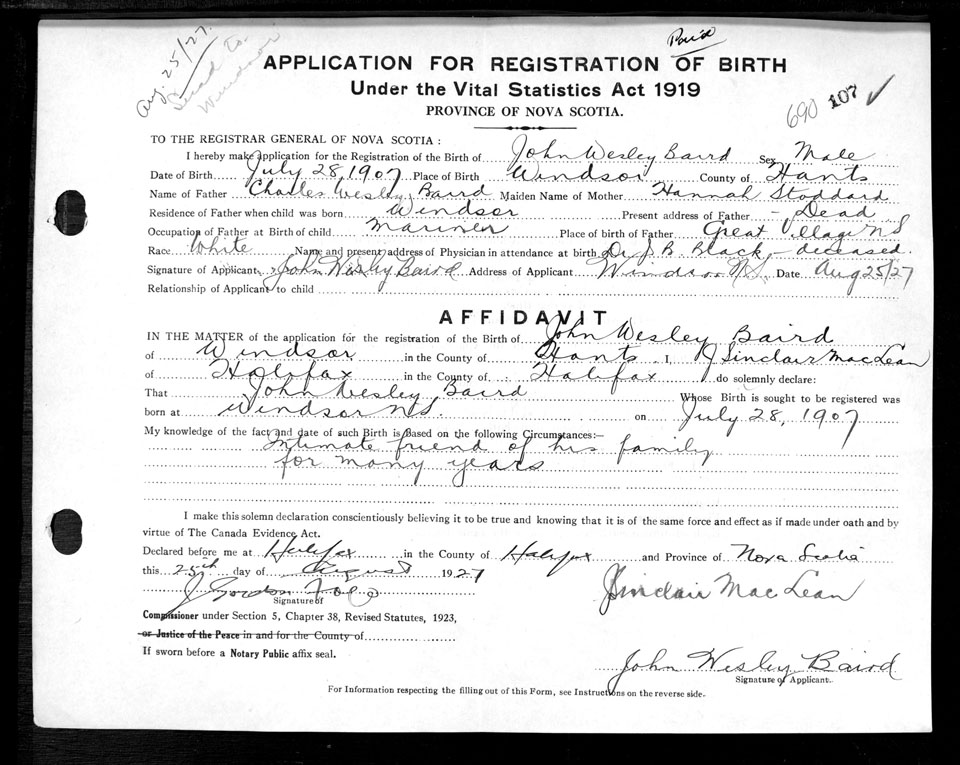 Aug. 25/27.
Send to
Windsor
Paid
APPLICATION FOR REGISTRATION OF BIRTH
Under the Vital Statistics Act 1919
PROVINCE OF NOVA SCOTIA.
690 107 ✓
TO THE REGISTRAR GENERAL OF NOVA SCOTIA :
I hereby make application for the Registration of the Birth of John Wesley Baird Sex Male
Date of Birth July 28, 1907 Place of Birth Windsor County of Hants
Name of Father Charles Wesley Baird Maiden Name of Mother Hannah Stoddard
Residence of Father when child was born Windsor Present address of Father - Dead
Occupation of Father at Birth of child Mariner Place of birth of Father Great Village N S
Race White Name and present address of Physician in attendance at birth Dr J. B. Black - deceased
Signature of Applicant John Wesley Baird Address of Applicant Windsor N.S. Date Aug 25/27
Relationship of Applicant to child
AFFIDAVIT
IN THE MATTER of the application for the registration of the Birth of John Wesley Baird
of Windsor in the County of Hants I, J Sinclair MacLean
of Halifax in the County of Halifax do solemnly declare:
That John Wesley Baird Whose Birth is sought to be registered was
born at Windsor N.S. on July 28, 1907
My knowledge of the fact and date of such Birth is Based on the following Circumstances:—
Intimate friend of his family
for many years
I make this solemn declaration conscientiously believing it to be true and knowing that it is of the same force and effect as if made under oath and by
virtue of The Canada Evidence Act.
Declared before me at Halifax in the County of Halifax and Province of Nova Scotia
this 25th day of August 1927
J Gordon J Sinclair MacLean
Signature of
Commissioner under Section 5, Chapter 38, Revised Statutes, 1923,
or Justice of the Peace in and for the County of
If sworn before a Notary Public affix seal.
John Wesley Baird
Signature of Applicant.
For Information respecting the filling out of this Form, see Instructions on the reverse side.